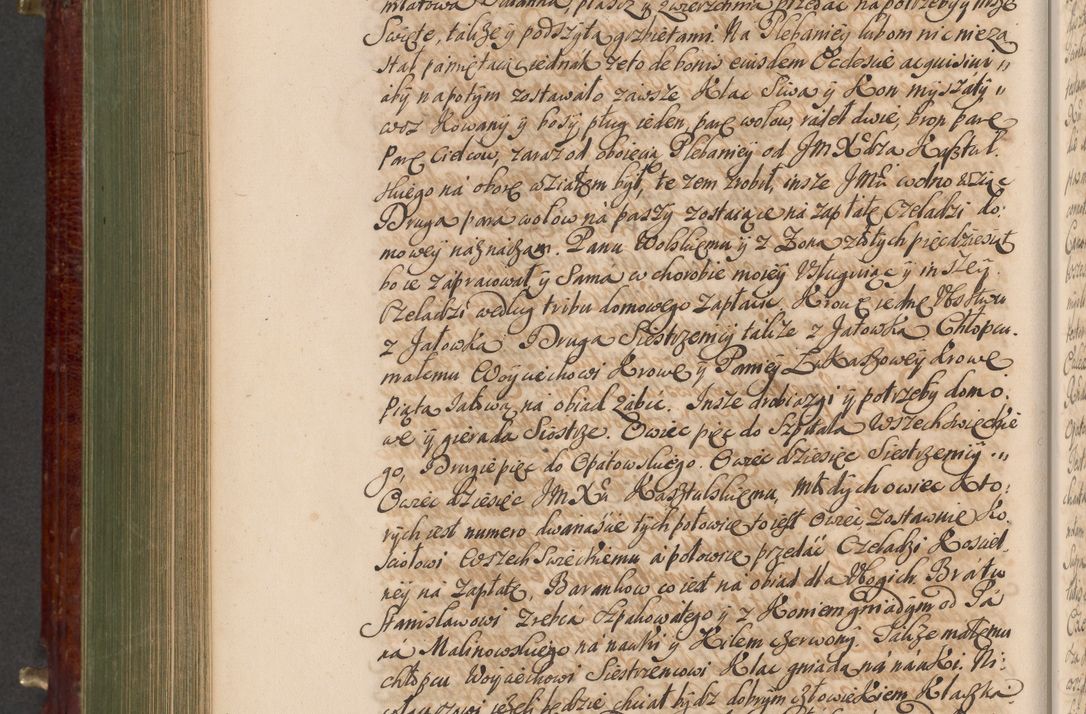 Swięte, talize y podszyta grzbietami. Na Plebaniey lubom nic nieza
stał pamiętaiąc iednak że to de bonis eiusdem Ecclesiae acquisiur
ały napotym zostawało zawsze Klac Siwa y Kon myszaty
woz Kowany y bosy, pług ieden, parę wołow, radeł dwie, bron parę
Parę Cielcow, zaraz od obięcia Plebaniey od JM Xdza Kasztul
skiego na oborę wziąłem był, te zem zrobił, insze JMci wolno wziąc
Druga para wołow na paszy zostaiące na zapłatę Czeladzi do
mowey naznaczam. Panu Wolskiemu y z Zoną złotych pięcdziesiąt
bo ie zapracował y Sama w chorobie moiey Usługuiąc y inszey
Czeladzi według tribu domowego zapłacic. Krowę iednę Ubostwu
z Jałowką Druga Siestrzemicy talize z Jałowką Chłopcu
małemu Woyciechowi Krowę y Paniey Łukaszowey Krowę
Piąta Jałowa na obiad zabic. Insze drobiazgi y potrzeby domo
we y gierada Siostrze. Owiec pięc do Szpitala Wszechswięckie
go, Drugie pięc do Opatowskiego. Owiec dziesięc Siestrzemicy
Owiec dziesięc JM Xu Kasztulskiemu, młodych owiec kto
rych iest numero dwanascie tych połowicę to iest Owiec zostawuię Ko
sciołowi Wszech Swięckiemu a połowicę przedać Czeladzi Kosciel
ney na Zapłatę, Barankow co iest na obiad dla Ubogich. Bratu
Stanisławowi Zrebca Szpakowatego y z Koniem gniadym od Pa
na Malinowskiego na nauki y Kilem czerwony. Talize małemu
chłopcu Woyciechowi Siestrzencowi Klac gniada na nauki. Mi